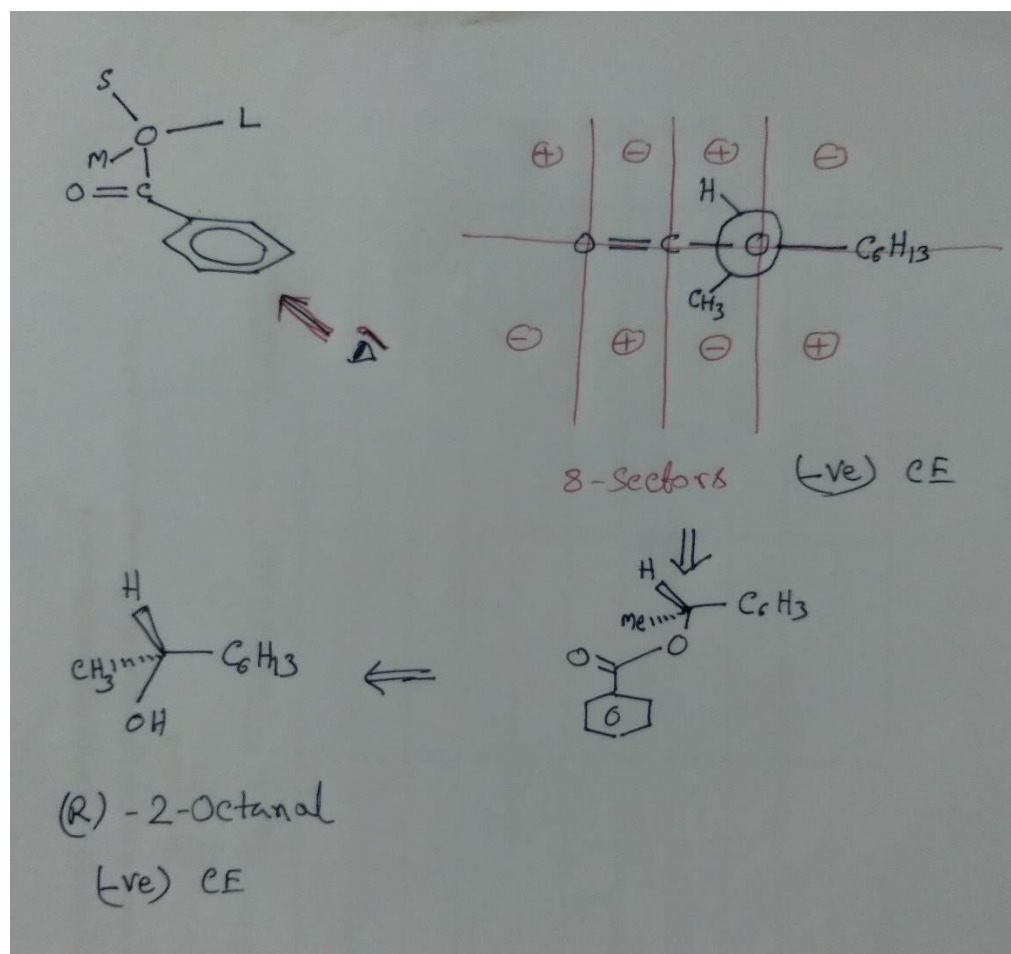 S
O L
M
O = C
⊕ ⊖ ⊕ ⊖
H
O = C — C — C6H13
CH3
⊖ ⊕ ⊖ ⊕
8-Sectors (-ve) CE
⇓
H
Me C6H3
O
O
H
CH3 C6H13
OH
⇐
(R) -2-Octanal
(-ve) CE